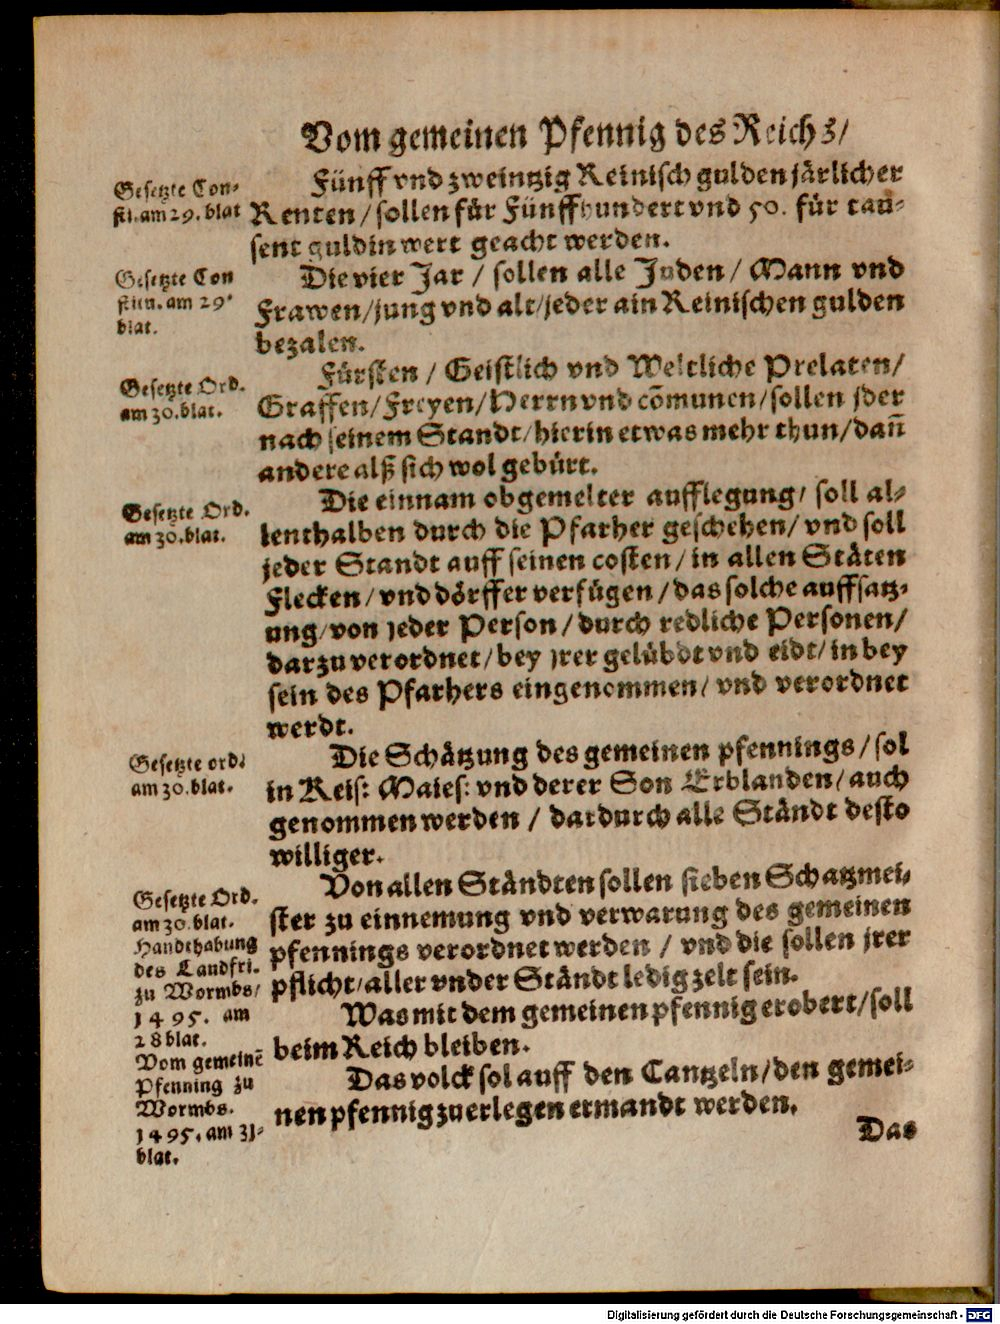 Vom gemeinen Pfennig des Reichs/
Gesetzte Con-
sti. am 29. blat
Fünff vnd zweintzig Reinisch gulden järlicher
Renten/ sollen für Fünffhundert vnd 50. für tau-
sent guldin wert geacht werden.
Gesetzte Con
stitu. am 29.
blat.
Die vier Jar / sollen alle Juden / Mann vnd
Frawen/ jung vnd alt/ jeder ain Reinischen gulden
bezalen.
Gesetzte Ord.
am 30. blat.
Fürsten / Geistlich vnd Weltliche Prelaten/
Graffen/ Freyen/ Herrn vnd cõmunen/ sollen jder
nach seinem Standt/ hierin etwas mehr thun/ dañ
andere alß sich wol gebürt.
Gesetzte Ord.
am 30. blat.
Die einnam obgemelter aufflegung/ soll al-
lenthalben durch die Pfarher geschehen/ vnd soll
jeder Standt auff seinen costen/ in allen Stäten
Flecken/ vnd dörffer verfügen/ das solche auffsatz-
ung/ von jeder Person/ durch redliche Personen/
darzu verordnet/ bey jrer gelübdt vnd eidt/ in bey
sein des Pfarhers eingenommen/ vnd verordnet
werdt.
Gesetzte ord:
am 30. blat.
Die Schätzung des gemeinen pfennings/ sol
in Keis: Maies: vnd derer Son Erblanden/ auch
genommen werden / dardurch alle Ständt desto
williger.
Gesetzte Ord.
am 30. blat.
Handthabung
des Landfri.
zu Wormbs/
1495. am
28 blat.
Von allen Ständten sollen sieben Schatzmei-
ster zu einnemung vnd verwarung des gemeinen
pfennings verordnet werden / vnd die sollen jrer
pflicht/ aller vnder Ständt ledig zelt sein.
Was mit dem gemeinen pfennig erobert/ soll
beim Reich bleiben.
Vom gemeinẽ
Pfenning zu
Wormbs.
1495. am 31-
blat.
Das volck sol auff den Cantzeln/ den gemei-
nen pfennig zuerlegen ermandt werden.
Das
Digitalisierung gefördert durch die Deutsche Forschungsgemeinschaft - DFG